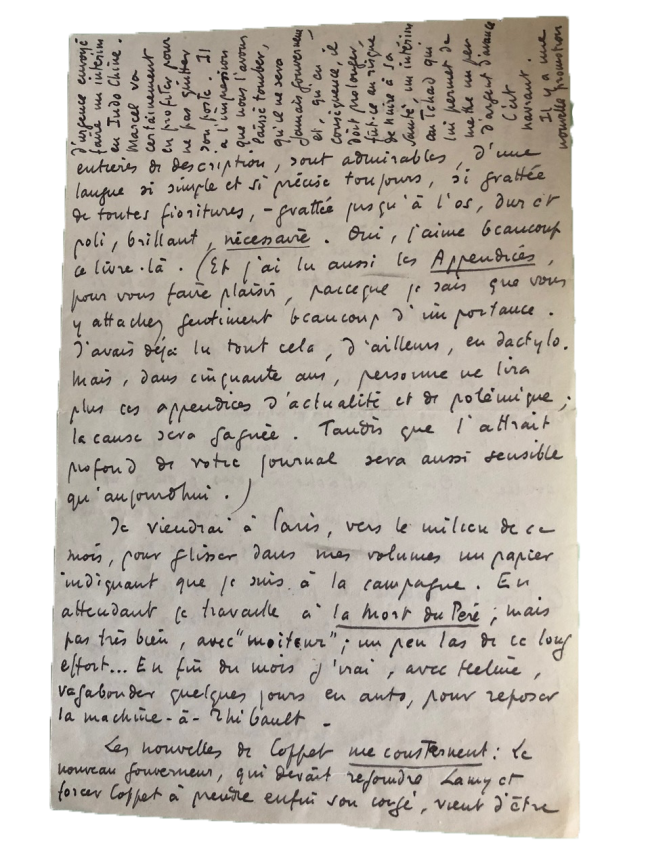 entières de description, sont admirables, d'une
langue si simple et si précise toujours, si grattée
de toutes fioritures, - grattée jusqu'à l'os, dur et
poli, brillant, nécessaire. Oui, j'aime beaucoup
ce livre-là. (Et j'ai lu aussi les Appendices,
pour vous faire plaisir, parceque je sais que vous
y attachez gentiment beaucoup d'importance.
J'avais déjà lu tout cela, d'ailleurs, en dactylo.
Mais, dans cinquante ans, personne ne lira
plus ces appendices d'actualité et de polémique ;
la cause sera gagnée. Tandis que l'attrait
profond de votre journal sera aussi sensible
qu'aujourdhui.)
Je viendrai à Paris, vers le milieu de ce
mois, pour glisser dans mes volumes un papier
indiquant que je suis à la campagne. En
attendant je travaille à la Mort du Père ; mais
pas très bien, avec "moiteur" ; un peu las de ce long
effort... En fin du mois j'irai, avec Hélène,
vagabonder quelques jours en auto, pour reposer
la machine-à-Thibault -
Les nouvelles de Coppet me consternent : Le
nouveau gouverneur, qui devait rejoindre Lamy et
forcer Coppet à prendre enfin son congé, vient d'être
d'urgence envoyé
faire un intérim
en Indo Chine.
Marcel va
certainement
en profiter pour
ne pas quitter
son poste. Il
a l'impression
que nous l'avons
laissé tomber,
qu'il ne sera
jamais gouverneur
et, qu'en
conséquence, il
doit prolonger,
fût-ce en risque
de nuire à la
santé, un intérim
au Tchad qui
lui permet de
mettre un peu
d'argent d'avance
C'est
navrant.
Il y a une
nouvelle promotion